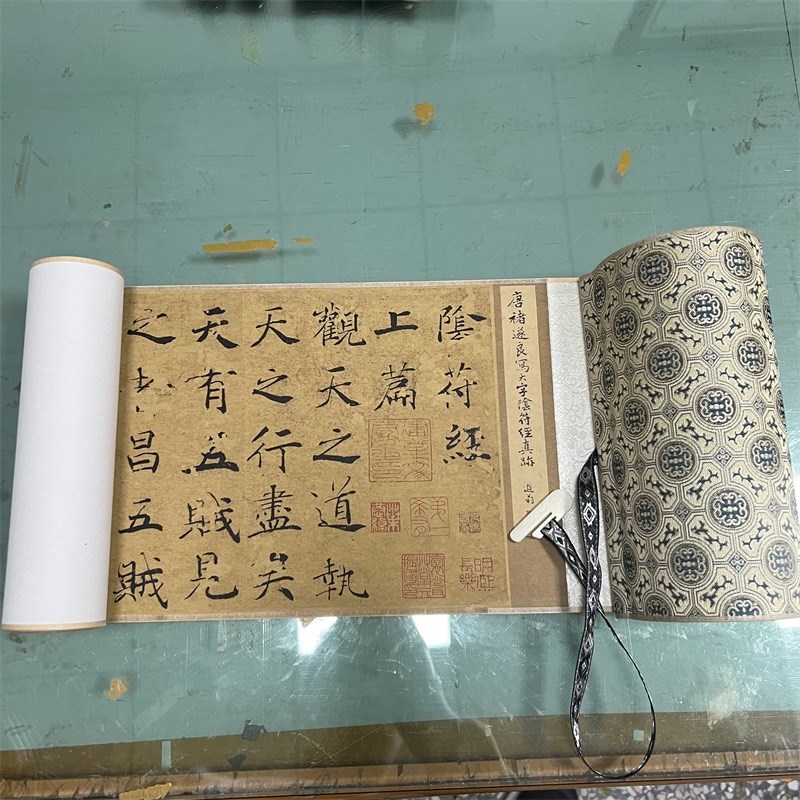 唐褚遂良寫大字陰符經真跡
陰符經
上篇
觀天之道執
天之行盡矣
天有五賊見
之者昌五賊
明熙
長樂